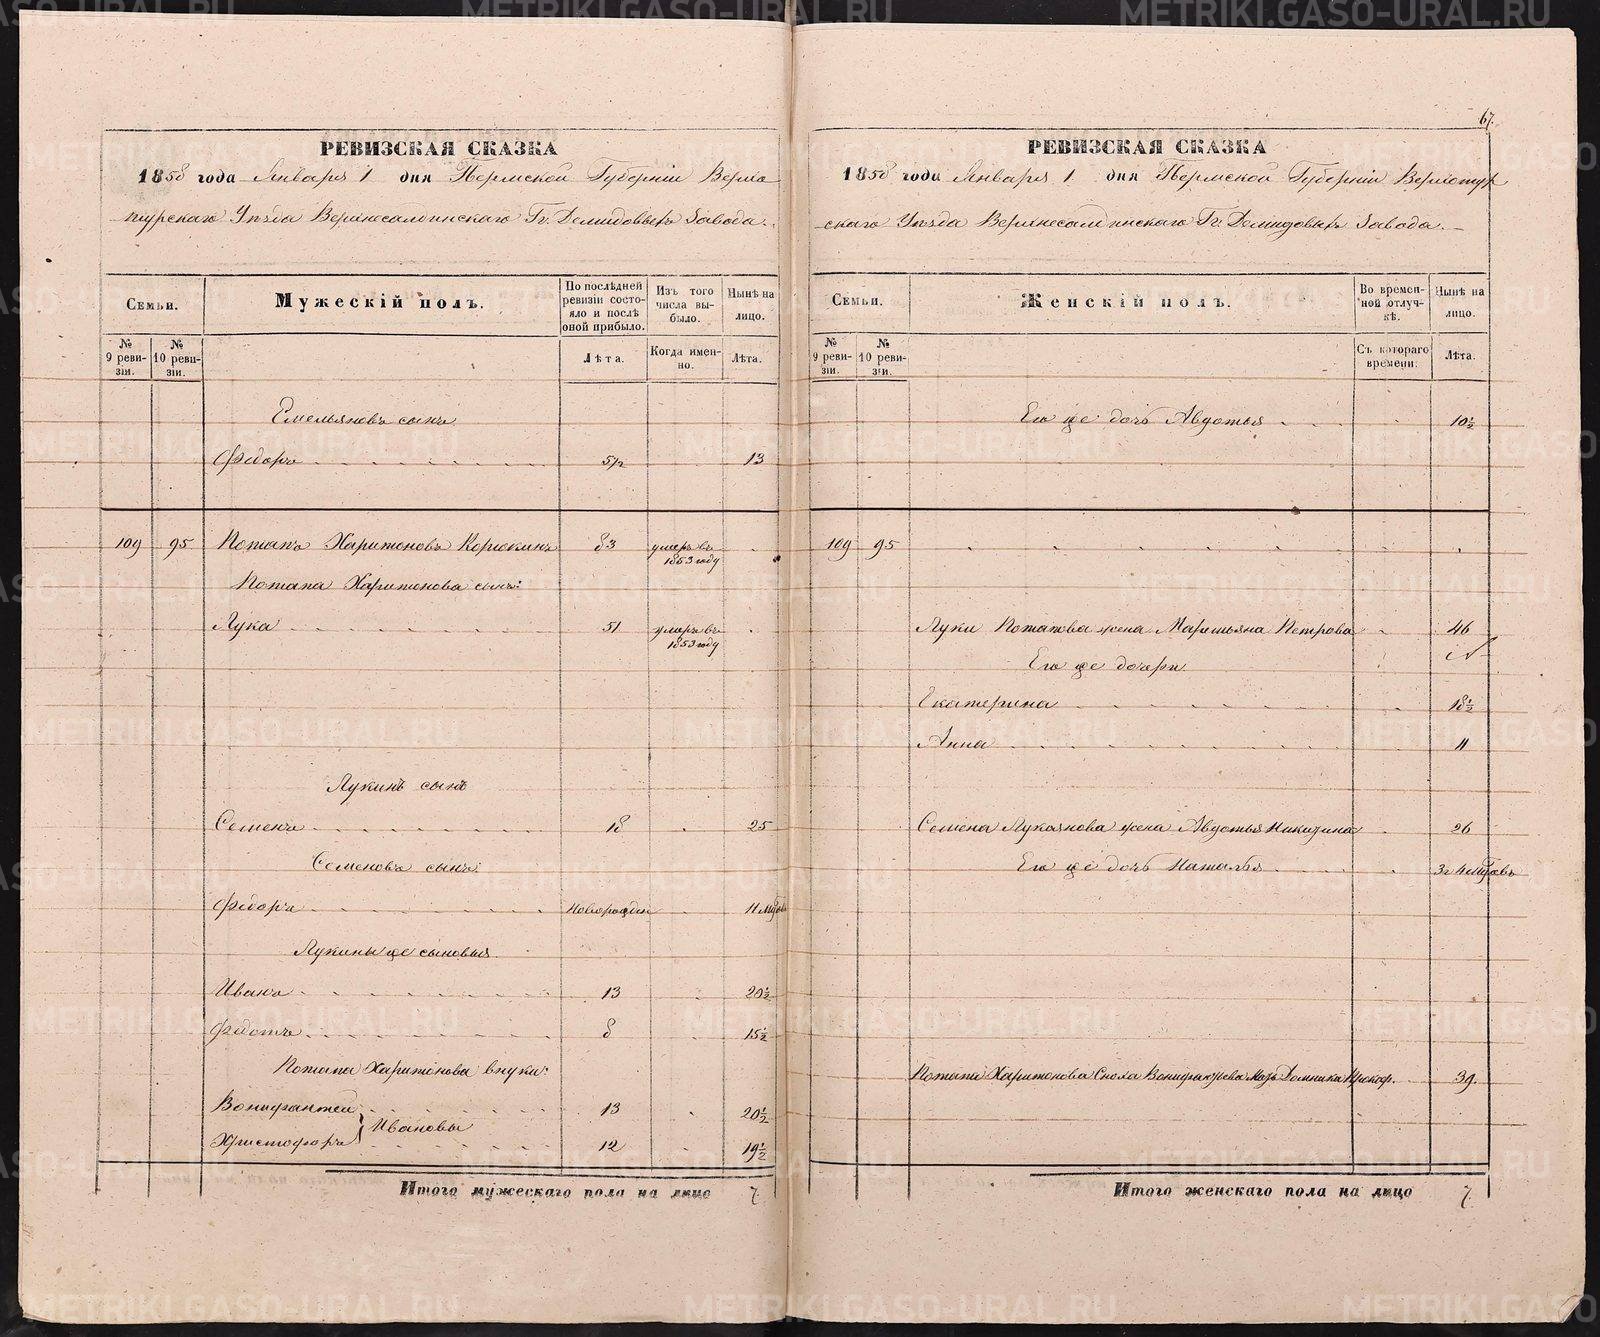 67.
РЕВИЗСКАЯ СКАЗКА
1858 года Января 1 дня Пермской Губерніи Верхо
турскаго Уѣзда Верхнесалдинскаго Гг. Демидовыхъ Завода.
Семьи.
Мужескій полъ.
По послѣдней ревизіи состояло и послѣ оной прибыло.
Изъ того числа выбыло.
Нынѣ на лицо.
№ 9 ревизіи.
№ 10 ревизіи.
Лѣта.
Когда именно.
Лѣта.
Емельяновъ сынъ
Федоръ 5½ 13
109 95 Потапъ Харитоновъ Корюкинъ 83 умеръ въ 1853 году
Потапа Харитонова сынъ:
Лука 51 умеръ въ 1853 году
Лукинъ сынъ
Семенъ 18 25
Семеновъ сынъ:
Федоръ новорожден 11 мцов
Лукины же сыновья
Иванъ 13 20½
Федотъ 8 15½
Потапа Харитонова внуки:
Вонифантей 13 20½
Ивановы
Христофоръ 12 19½
Итого мужескаго пола на лицо 7
РЕВИЗСКАЯ СКАЗКА
1858 года Января 1 дня Пермской Губерніи Верхотур
скаго Уѣзда Верхнесалдинскаго Гг. Демидовыхъ Завода.
Семьи.
Женскій полъ.
Во временной отлучкѣ.
Нынѣ на лицо.
№ 9 ревизіи.
№ 10 ревизіи.
Съ котораго времени.
Лѣта.
Его же дочь Авдотья 10½
109 95
Луки Потапова жена Маремьяна Петрова 46
Его же дочери
Екатерина 18½
Анна 11
Семена Лукоянова жена Авдотья Никитина 26
Его же дочь Наталья 3г 4 мцовъ
Потапа Харитонова Сноха Вонифантьева Мать Домника Прокоф. 39.
Итого женскаго пола на лицо 7